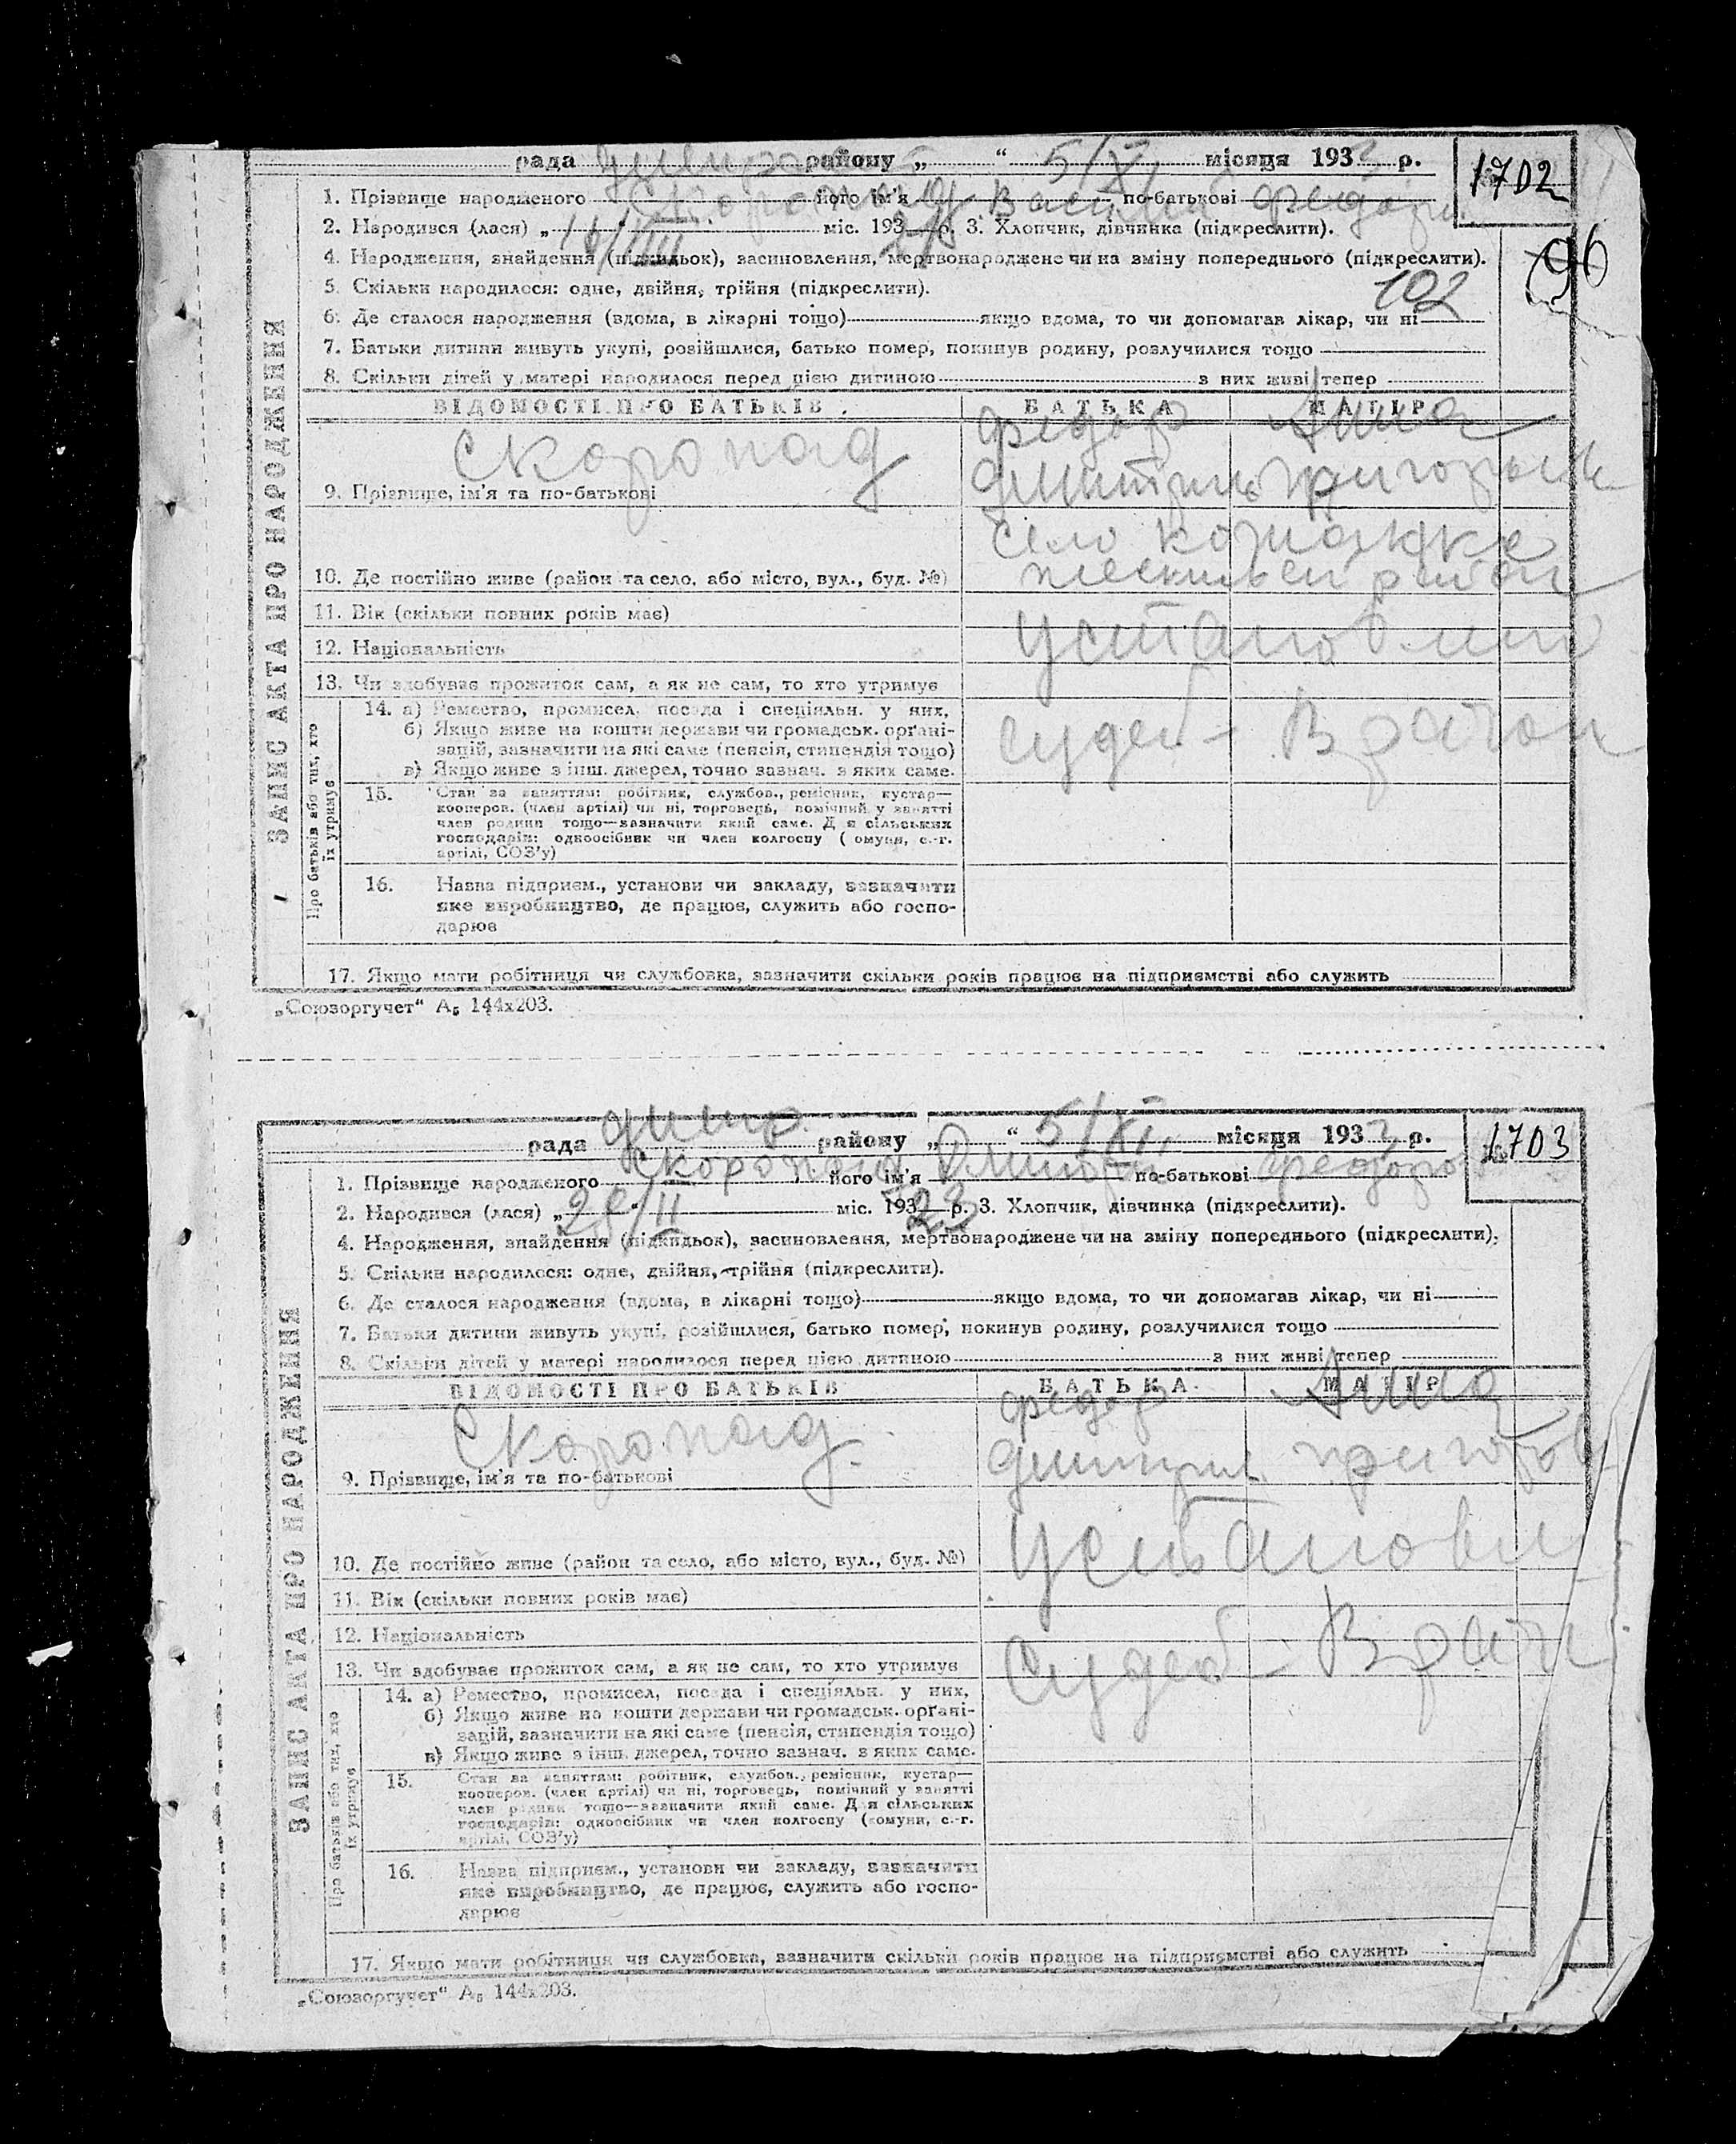 рада районну „ “ 5/XI місяця 1933 р. 1702
1. Прізвище народженого Скоропад його ім'я Васил по-батькові Федор
2. Народився (лася) „16/VIII міс. 193 р. 3. Хлопчик, дівчинка (підкреслити).
96
4. Народження, знайдення (підкидьок), засиновлення, мертвонароджене чи на зміну попереднього (підкреслити).
5. Скільки народилося: одне, двійня, трійня (підкреслити).
102
6. Де сталося народження (вдома, в лікарні тощо) якщо вдома, то чи допомагав лікар, чи ні
7. Батьки дитини живуть укупі, розійшлися, батько помер, покинув родину, розлучилися тощо
8. Скільки дітей у матері народилося перед цією дитиною з них живі тепер
ЗАПИС АКТА ПРО НАРОДЖЕННЯ
ВІДОМОСТІ ПРО БАТЬКІВ БАТЬКА МАТІР
Скоропад Федор Анна
9. Прізвище, ім'я та по-батькові
село
10. Де постійно живе (район та село, або місто, вул., буд. №)
11. Вік (скільки повних років має)
12. Національність
13. Чи здобуває прожиток сам, а як не сам, то хто утримує
Про батьків або тих, хто їх утримує
14. а) Ремество, промисел, посада і спеціяльн. у них,
б) Якщо живе на кошти держави чи громадськ. орґані-
зацій, зазначити на які саме (пенсія, стипендія тощо)
в) Якщо живе з інш. джерел, точно зазнач. з яких саме.
15. Стан за заняттям: робітник, службов., ремісник, кустар—
кооперов. (член артілі) чи ні, торговець, помічний у занятті
член родини тощо—зазначити який саме. Д я сільських
господарів: одноосібник чи член колгоспу ( омуни, с.-г.
артілі, СОЗ'у)
16. Назва підприєм., установи чи закладу, зазначити
яке виробництво, де працює, служить або госпо-
дарює
17. Якщо мати робітниця чи службовка, зазначити скільки років працює на підприємстві або служить
„Союзоргучет“ А₅ 144х203.
рада району „ “ 5/XI місяця 1933 р. 1703
1. Прізвище народженого Скоропад його ім'я по-батькові Федоро
2. Народився (лася) „28/II міс. 193 23 р. 3. Хлопчик, дівчинка (підкреслити).
4. Народження, знайдення (підкидьок), засиновлення, мертвонароджене чи на зміну попереднього (підкреслити).
5. Скільки народилося: одне, двійня, трійня (підкреслити).
6. Де сталося народження (вдома, в лікарні тощо) якщо вдома, то чи допомагав лікар, чи ні
7. Батьки дитини живуть укупі, розійшлися, батько помер, покинув родину, розлучилися тощо
8. Скільки дітей у матері народилося перед цією дитиною з них живі тепер
ЗАПИС АКТА ПРО НАРОДЖЕННЯ
ВІДОМОСТІ ПРО БАТЬКІВ БАТЬКА МАТІР
Скоропад Федор Анна
9. Прізвище, ім'я та по-батькові
10. Де постійно живе (район та село, або місто, вул., буд. №)
11. Вік (скільки повних років має)
12. Національність
13. Чи здобуває прожиток сам, а як не сам, то хто утримує
Про батьків або тих, хто їх утримує
14. а) Ремество, промисел, посада і спеціяльн. у них,
б) Якщо живе на кошти держави чи громадськ. орґані-
зацій, зазначити на які саме (пенсія, стипендія тощо)
в) Якщо живе з інш. джерел, точно зазнач. з яких саме.
15. Стан за заняттям: робітник, службов., ремісник, кустар—
кооперов. (член артілі) чи ні, торговець, помічний у занятті
член родини тощо—зазначити який саме. Д я сільських
господарів: одноосібник чи член колгоспу (комуни, с.-г.
артілі, СОЗ'у)
16. Назва підприєм., установи чи закладу, зазначити
яке виробництво, де працює, служить або госпо-
дарює
17. Якщо мати робітниця чи службовка, зазначити скільки років працює на підприємстві або служить
„Союзоргучет“ А₅ 144х203.